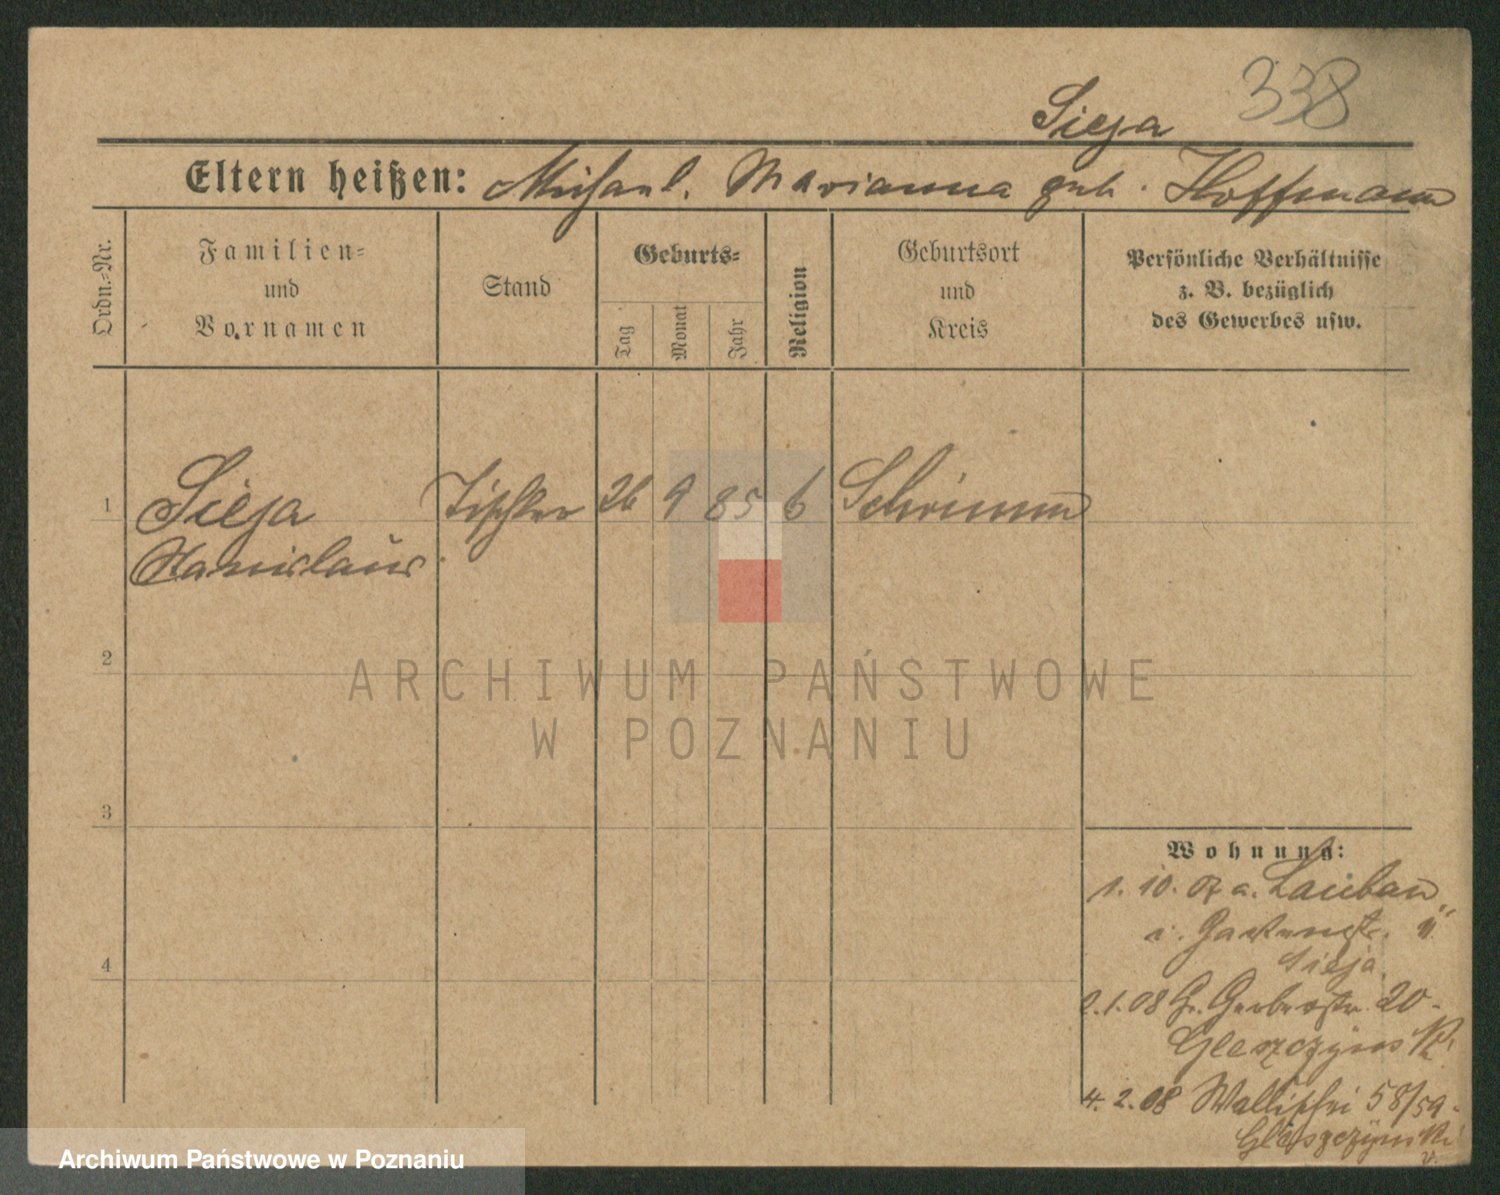 338
Sieja
Eltern heißen: Michael. Marianna geb. Hoffmann
Ordn.-Nr.
Familien-
und
Vornamen
Stand
Geburts-
Tag
Monat
Jahr
Religion
Geburtsort
und
Kreis
Persönliche Verhältnisse
z. B. bezüglich
des Gewerbes usw.
1 Sieja Tischler 26 9 85 6 Schrimm
Stanislaus
2
3
4
Wohnung:
1. 10. 07 a. Lauban
Gartenstr.
Sieja
2.1.08 Gr. Gerberstr. 20
Gleszczynski
4. 2. 08 Wallischei 58/59
Gleszczynski
ARCHIWUM PAŃSTWOWE
W POZNANIU
Archiwum Państwowe w Poznaniu